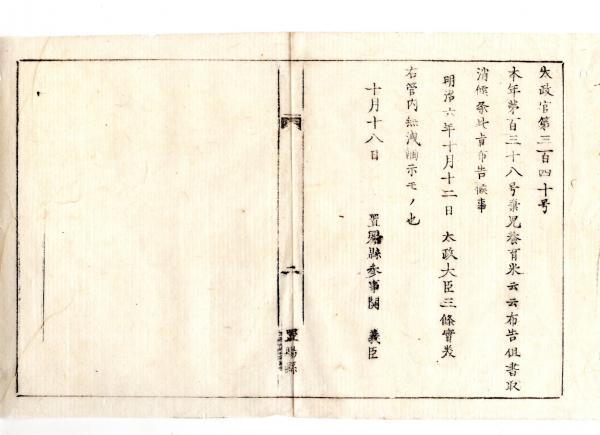 太政官第三百四十号
本年第百三十八号棄児養育米云云布告但書取
消候条此旨布告候事
明治六年十月十二日 太政大臣三條實美
右管内無洩相示モノ也
十月十八日 置賜縣参事関 義臣
二
置賜縣